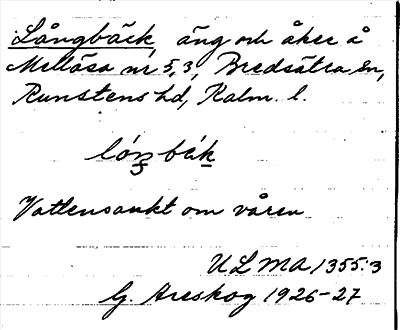 Långbäck, äng och åker å
Mellösa nr 5, 3, Bredsätra sn,
Runstens hd, Kalm. l.
Vattensankt om våren
ULMA 1355:3
G. Areskog 1926-27